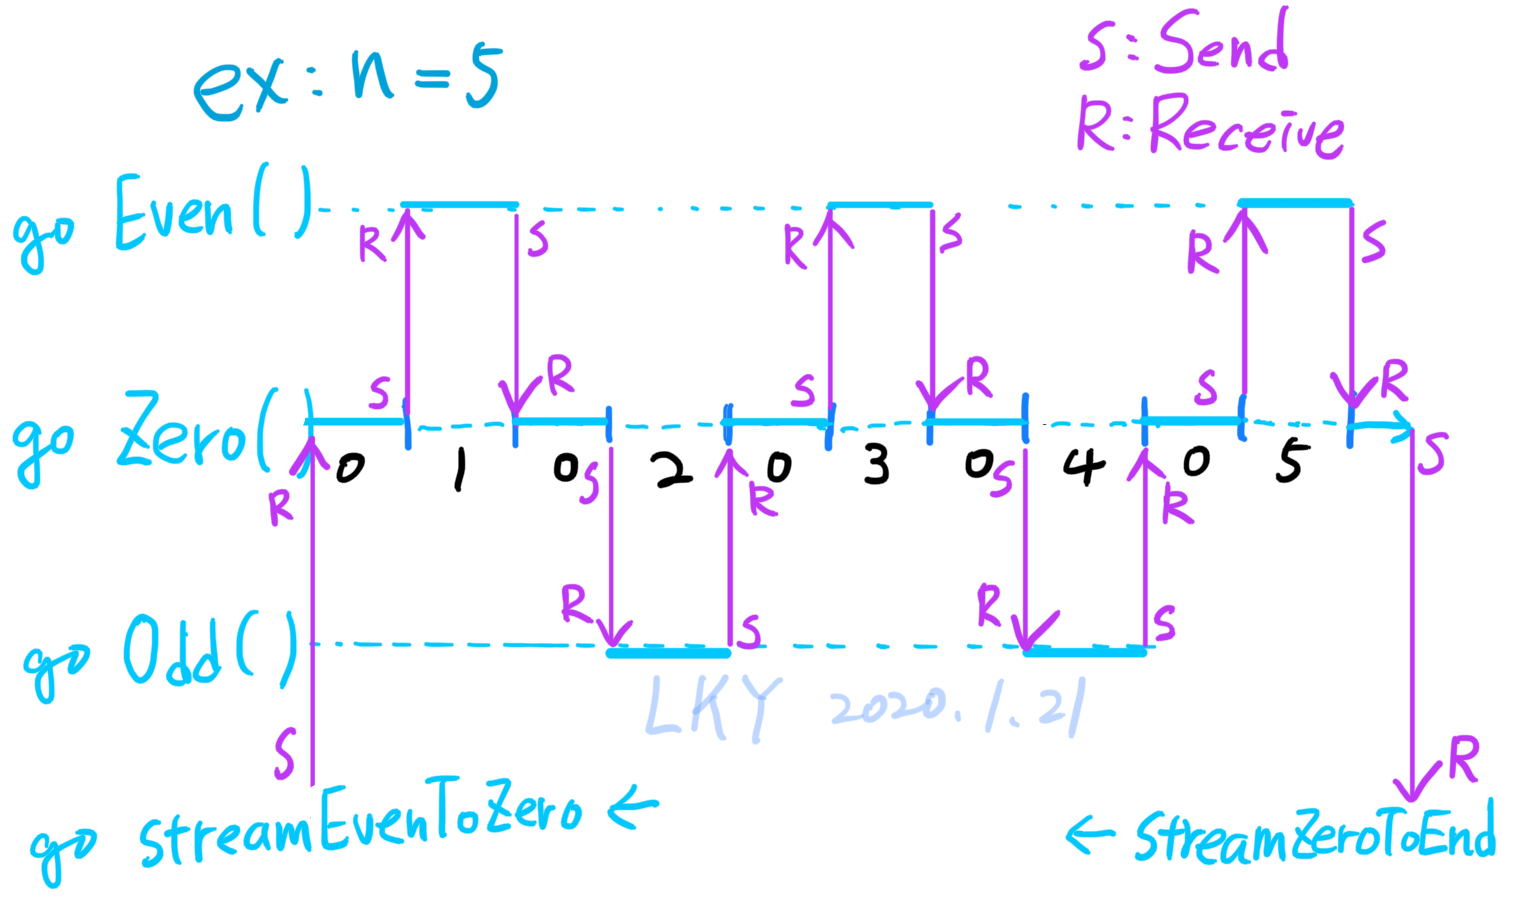 ex: n=5
S: Send
R: Receive
go Even()
R S R S R S
S R S R S R
go Zero()
0 1 0 2 0 3 0 4 0 5
R S R S R S
R S R S
go Odd()
LKY 2020.1.21
S R
go streamEvenToZero ←
← StreamZeroToEnd